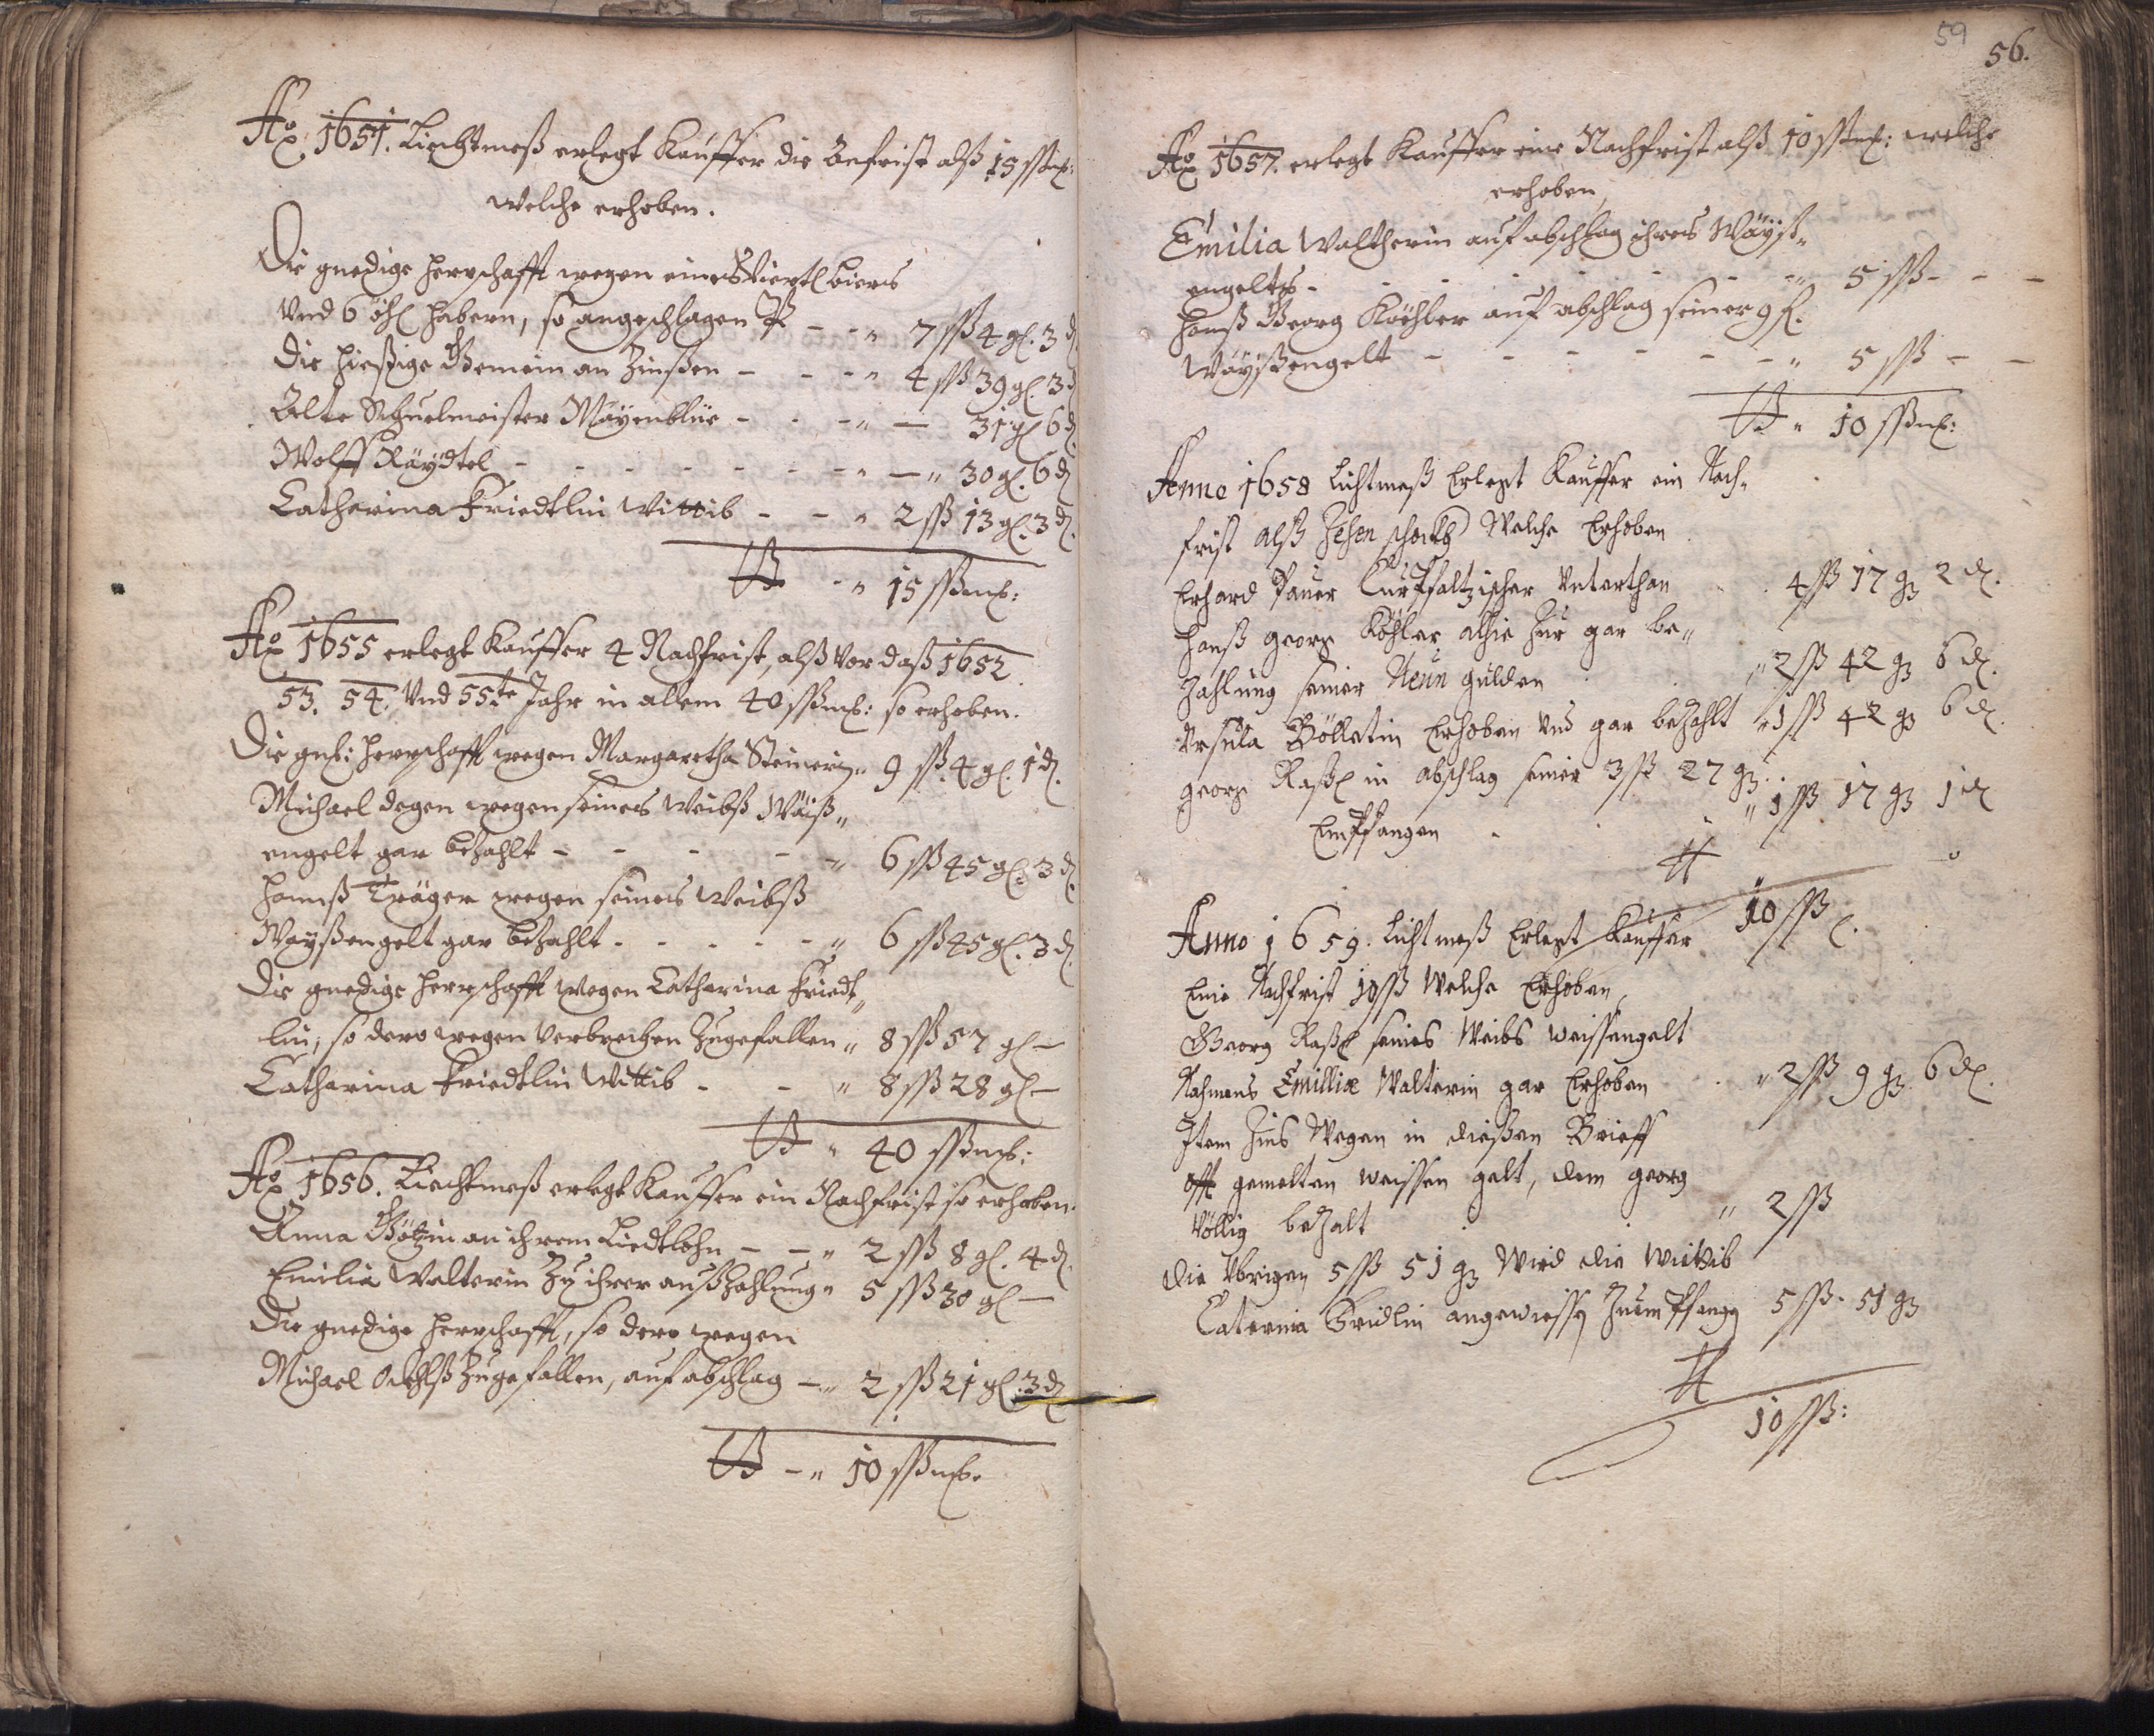 Ao 1651. Liechtmeß erlegt Kauffer die Befrist alß 15 ßßmß:
welche erhoben.
Die gnedige Herrschafft wegen eines Viertl Biers
Vnd 6 Habern, so angeschlagen P - - " 7 ßß 4 gl. 3 d
Die hießige Gemein an Zinßen - - - " 4 ßß 39 gl. 3 d
Alte Schuelmeister Mäyenblüe - - - " — 31 gl 6 d.
Wolff Räydtel - - - - - - - " — " 30 gl. 6 d
Catharina Friedtlin Wittib - - " 2 ßß 13 gl. 3 d.
" 15 ßßmß:
Ao 1655 erlegt Kauffer 4 Nachfrist, alß vor daß 1652.
53. 54. Vnd 55te Jahr in allem 40 ßßmß: so erhoben.
Die gnd: Herrschafft wegen Margaretha Steinerin " 9 ßß. 4 gl. 1 d.
Michael Degen wegen seines Weibß Wäiß"
engelt gar bezahlt - - - - - " 6 ßß 45 gl. 3 d.
Hannß Träger wegen seines Weibß
Wayßengelt gar bezahlt - - - - - " 6 ßß 45 gl. 3 d.
Die gnedige Herrschafft wegen Catharina Friedt"
lin, so dero wegen Verbrechen Zugefallen " 8 ßß 57 gl —
Catharina Friedtlin Wittib - - " 8 ßß 28 gl —
" 40 ßßmß:
Ao 1656. Liechtmeß erlegt Kauffer ein Nachfrist so erhoben.
Anna Götzin an ihrem Liedtlohn - - " 2 ßß 8 gl. 4 d.
Emilia Walterin Zu ihrer außzahlung " 5 ßß 30 gl —
Die gnedige Herrschafft, so dero wegen
Michael Zugefallen, auf abschlag - " 2 ßß 21 gl. 3 d
- " 10 ßßmß.
59
56.
Ao 1657. erlegt Kauffer eine Nachfrist alß 10 ßßmß: welche
erhoben,
Emilia Waltherin auf abschlag ihres Wäyß"
engelts - - - - - - - " 5 ßß - - -
Hanß Georg Köhler auf abschlag seiner 9 f.
Wayßengelt - - - - - - " 5 ßß - -
" 10 ßßmß:
Anno 1658 Lichtmeß Erlegt Kauffer ein Nach"
frist alß Zehen schockh Welche Erhoben
Erhard Pauer Curpfaltzischer Vnterthan 4 ßß 17 g 2 d.
Hanß Georg Köhler alhie Zur gar be"
Zahlung seiner Neun gulden " 2 ßß 42 g 6 d.
Vrsula Böllatin Erhoben Vnd gar bezahlt " 1 ßß 42 g 6 d.
Georg in abschlag seiner 3 ßß 27 g
Empfangen " 1 ßß 17 g 1 d
10 ßß
Anno 1659. Lichtmeß Erlegt Kauffer
Eine Nachfrist 10 ßß Welche Erhoben,
Georg seines Weibs weissengelt
Nahmens Emilliæ Walterin gar Erhoben " 2 ßß 9 g. 6 d.
Item Zins Wegen in dießen Brieff
offt gemelten weissen gelt, dem Georg
Völlig bezalt " 2 ßß
Die Vbrigen 5 ßß 51 g Wird die Wittib
Caterina Fridlin angewiessen Zu empfangen 5 ßß. 51 g
10 ßß: